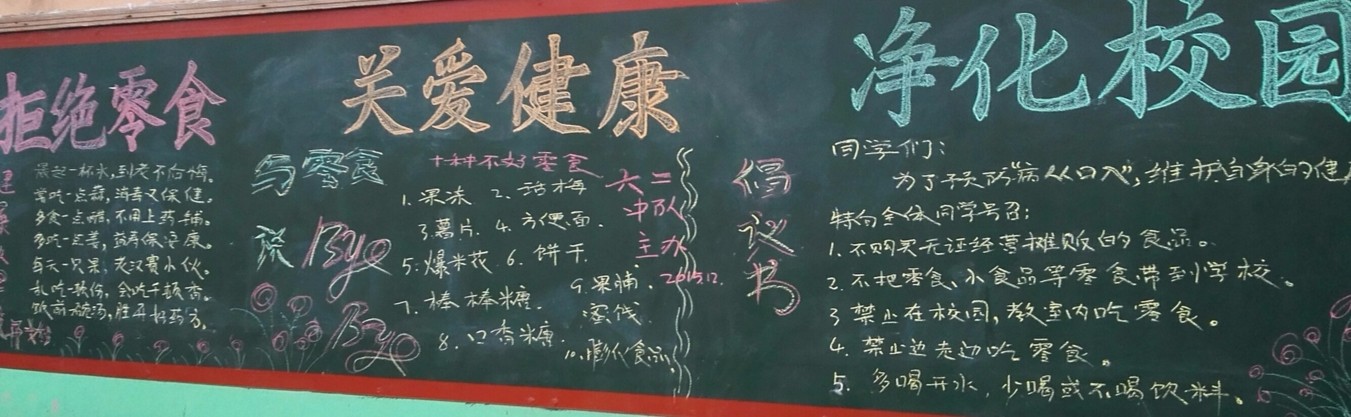 拒绝零食
关爱健康
净化校园
晨起一杯水,到老不后悔。
常吃一点蒜,消毒又保健。
多食一点醋,不用上药铺。
多吃一点姜,益寿保安康。
每天一只果,老汉赛小伙。
乱吃一顿伤,会吃千顿香。
饭前一碗汤,胜过好药方。
与零食
说 Bye
Bye
十种不好零食
1. 果冻 2. 话梅
3. 薯片. 4. 方便面.
5. 爆米花. 6. 饼干.
7. 棒棒糖.
8. 口香糖.
9. 果脯.
蜜饯
10. 膨化食品
六二
中队
主办
2015.12.
倡
议
书
同学们:
为了预防“病从口入”,维护自身的健
特向全体同学号召:
1. 不购买无证经营摊贩的食品。
2. 不把零食、小食品等零食带到学校。
3 禁止在校园,教室内吃零食。
4. 禁止边走边吃零食。
5. 多喝开水,少喝或不喝饮料。